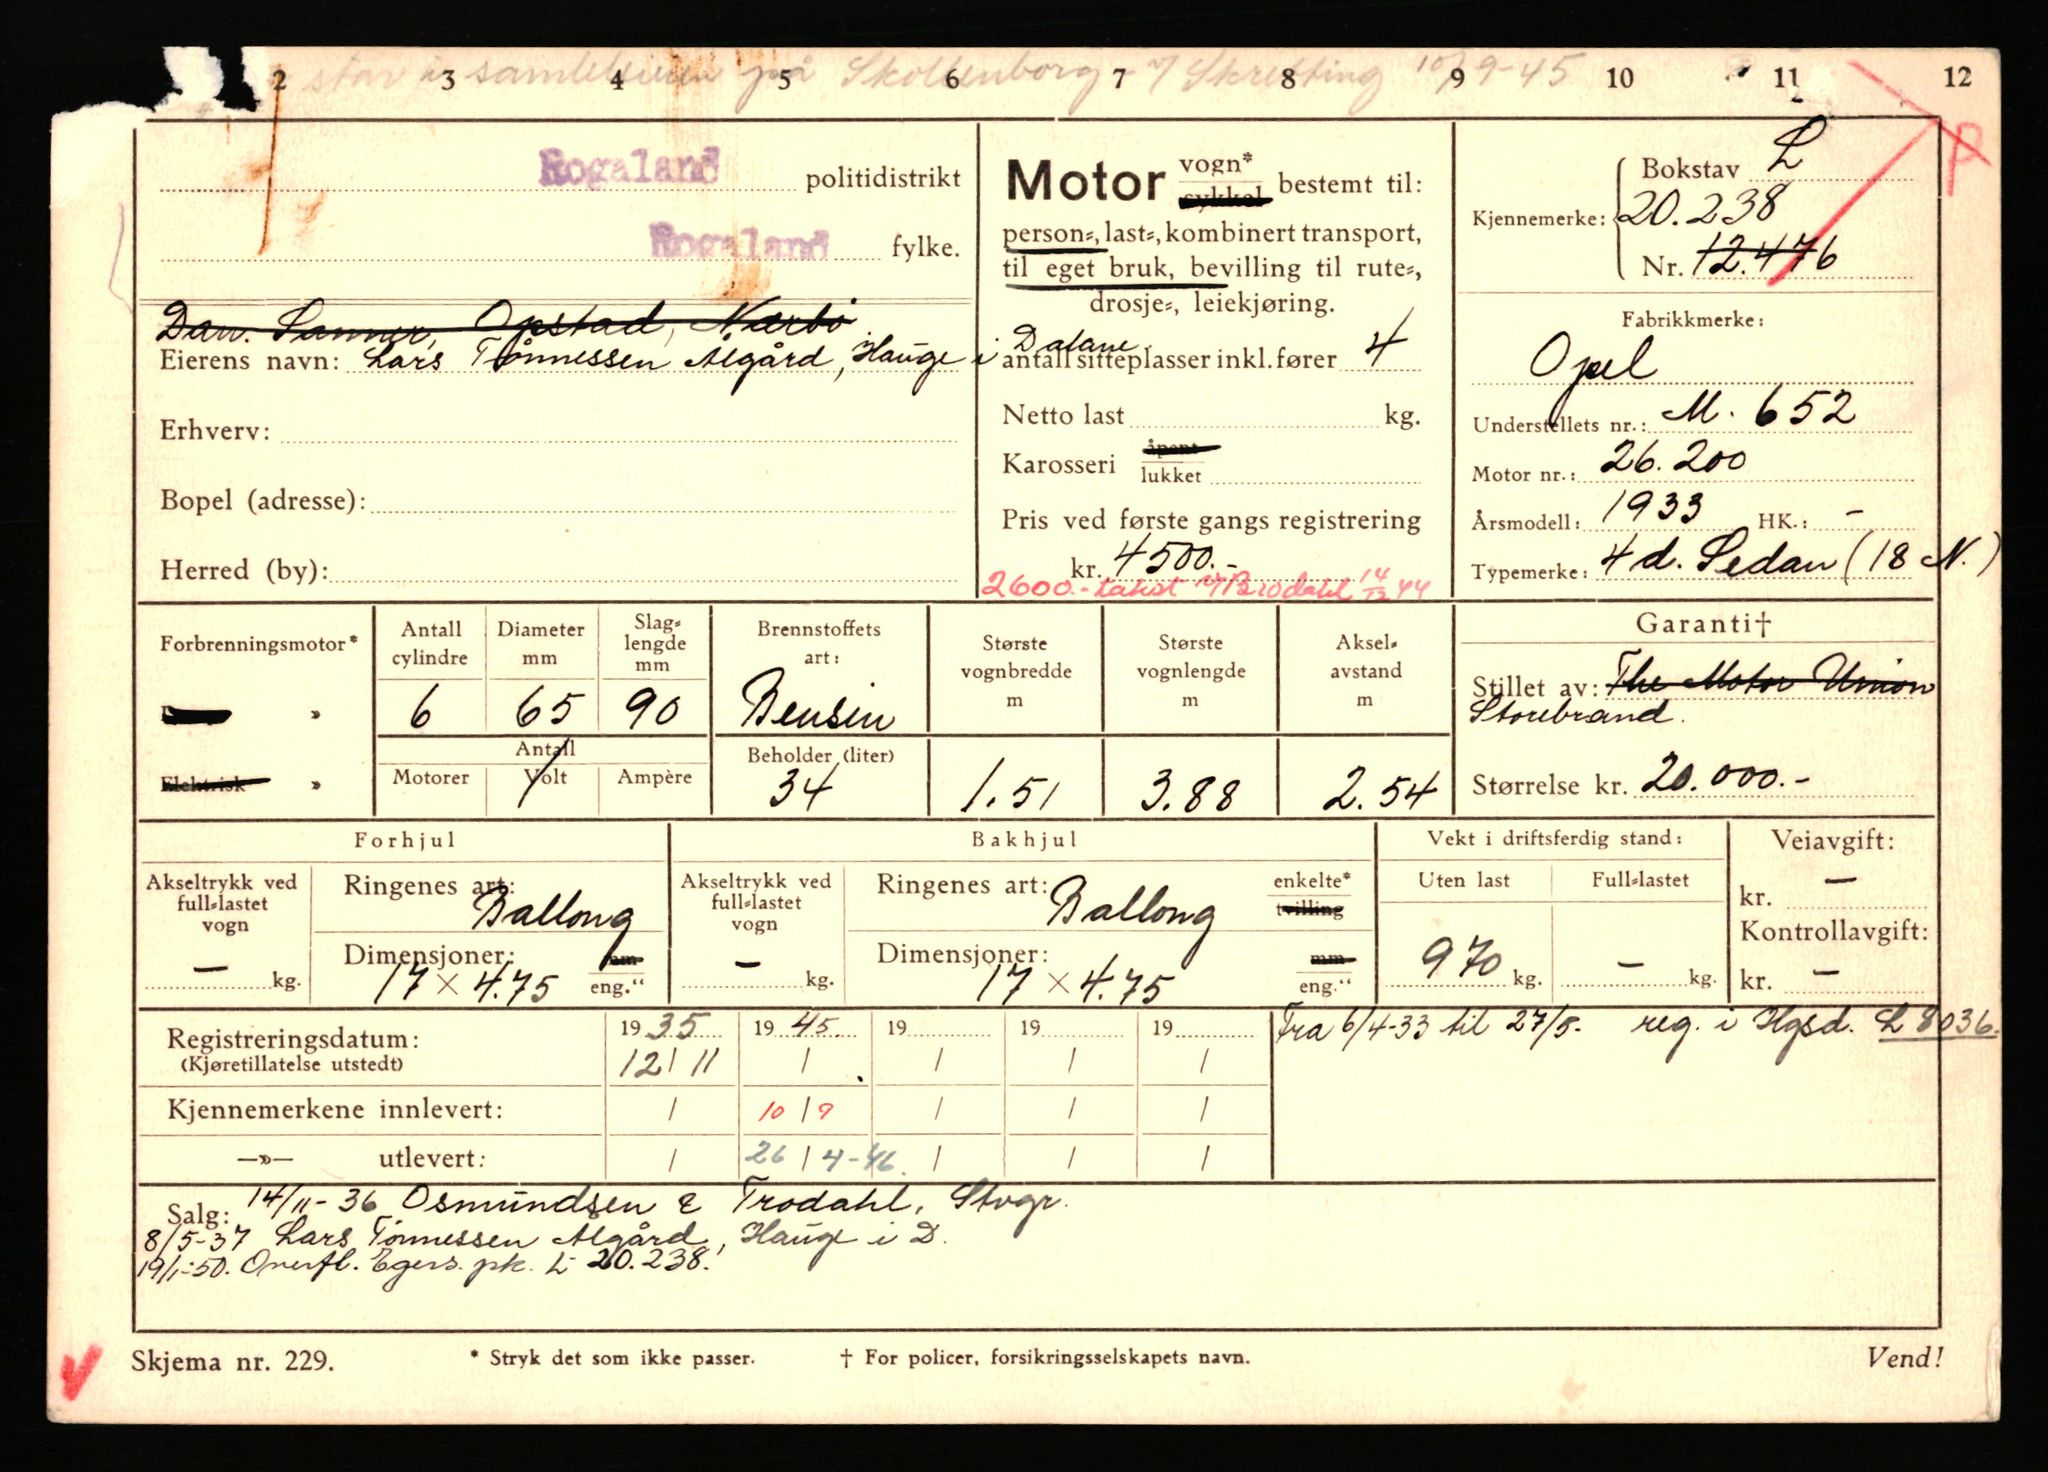 2 3 4 5 6 7 8 9 10 11 12
står i samleleiren på Skollenborg Skretting 10/9-45
Rogaland politidistrikt
Rogaland fylke.
Dan. Sanner, Opstad, Nærbø
Eierens navn: Lars Tønnessen Ålgård, Hauge i Dalane
Erhverv:
Bopel (adresse):
Herred (by):
Motor vogn* sykkel bestemt til:
person-, last-, kombinert transport,
til eget bruk, bevilling til rute-,
drosje-, leiekjøring.
antall sitteplasser inkl. fører 4
Netto last kg.
Karosseri åpent
lukket
Pris ved første gangs registrering
kr. 4500.-
2600.- takst v/ Brodahl 14/12 44
Kjennemerke: Bokstav L
20.238
Nr. 12.476
P
Fabrikkmerke:
Opel
Understellets nr.: M. 652
Motor nr.: 26.200
Årsmodell: 1933 HK.: -
Typemerke: 4 d. Sedan (18 N.)
Forbrenningsmotor*
»
Elektrisk »
Antall cylindre
6
Diameter mm
65
Slaglengde mm
90
Antall
Motorer Volt Ampère
Brennstoffets art:
Bensin
Beholder (liter)
34
Største vognbredde m
1.51
Største vognlengde m
3.88
Akselavstand m
2.54
Garanti†
Stillet av: The Motor Union
Storebrand.
Størrelse kr. 20.000.-
Forhjul
Akseltrykk ved full-lastet vogn
- kg.
Ringenes art: Ballong
Dimensjoner: mm
17 × 4.75 eng."
Bakhjul
Akseltrykk ved full-lastet vogn
- kg.
Ringenes art: Ballong enkelte*
tvilling
Dimensjoner: mm
17 × 4.75 eng."
Vekt i driftsferdig stand:
Uten last Full-lastet
970 kg. - kg.
Veiavgift:
kr. -
Kontrollavgift:
kr. -
Registreringsdatum: 19 35 19 45 19 19 19
(Kjøretillatelse utstedt) 12 / 11 / / / /
Kjennemerkene innlevert: / 10 / 9 / / /
—»— utlevert: / 26 / 4-46. / / /
Fra 6/4-33 til 27/5- reg. i Hgsd. L 8036.
Salg: 14/11-36 Osmundsen & Trodahl, Stvgr.
8/5-37 Lars Tønnessen Ålgård, Hauge i D.
19/1-50. Overfl. Egers. pk. L- 20.238.
Skjema nr. 229. * Stryk det som ikke passer. † For policer, forsikringsselskapets navn. Vend!